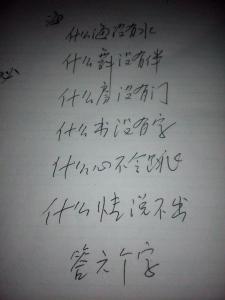 海
什么海没有水
什么没有伴
什么房没有门
什么书没有字
什么心不会跳
什么情说不出
答六个字